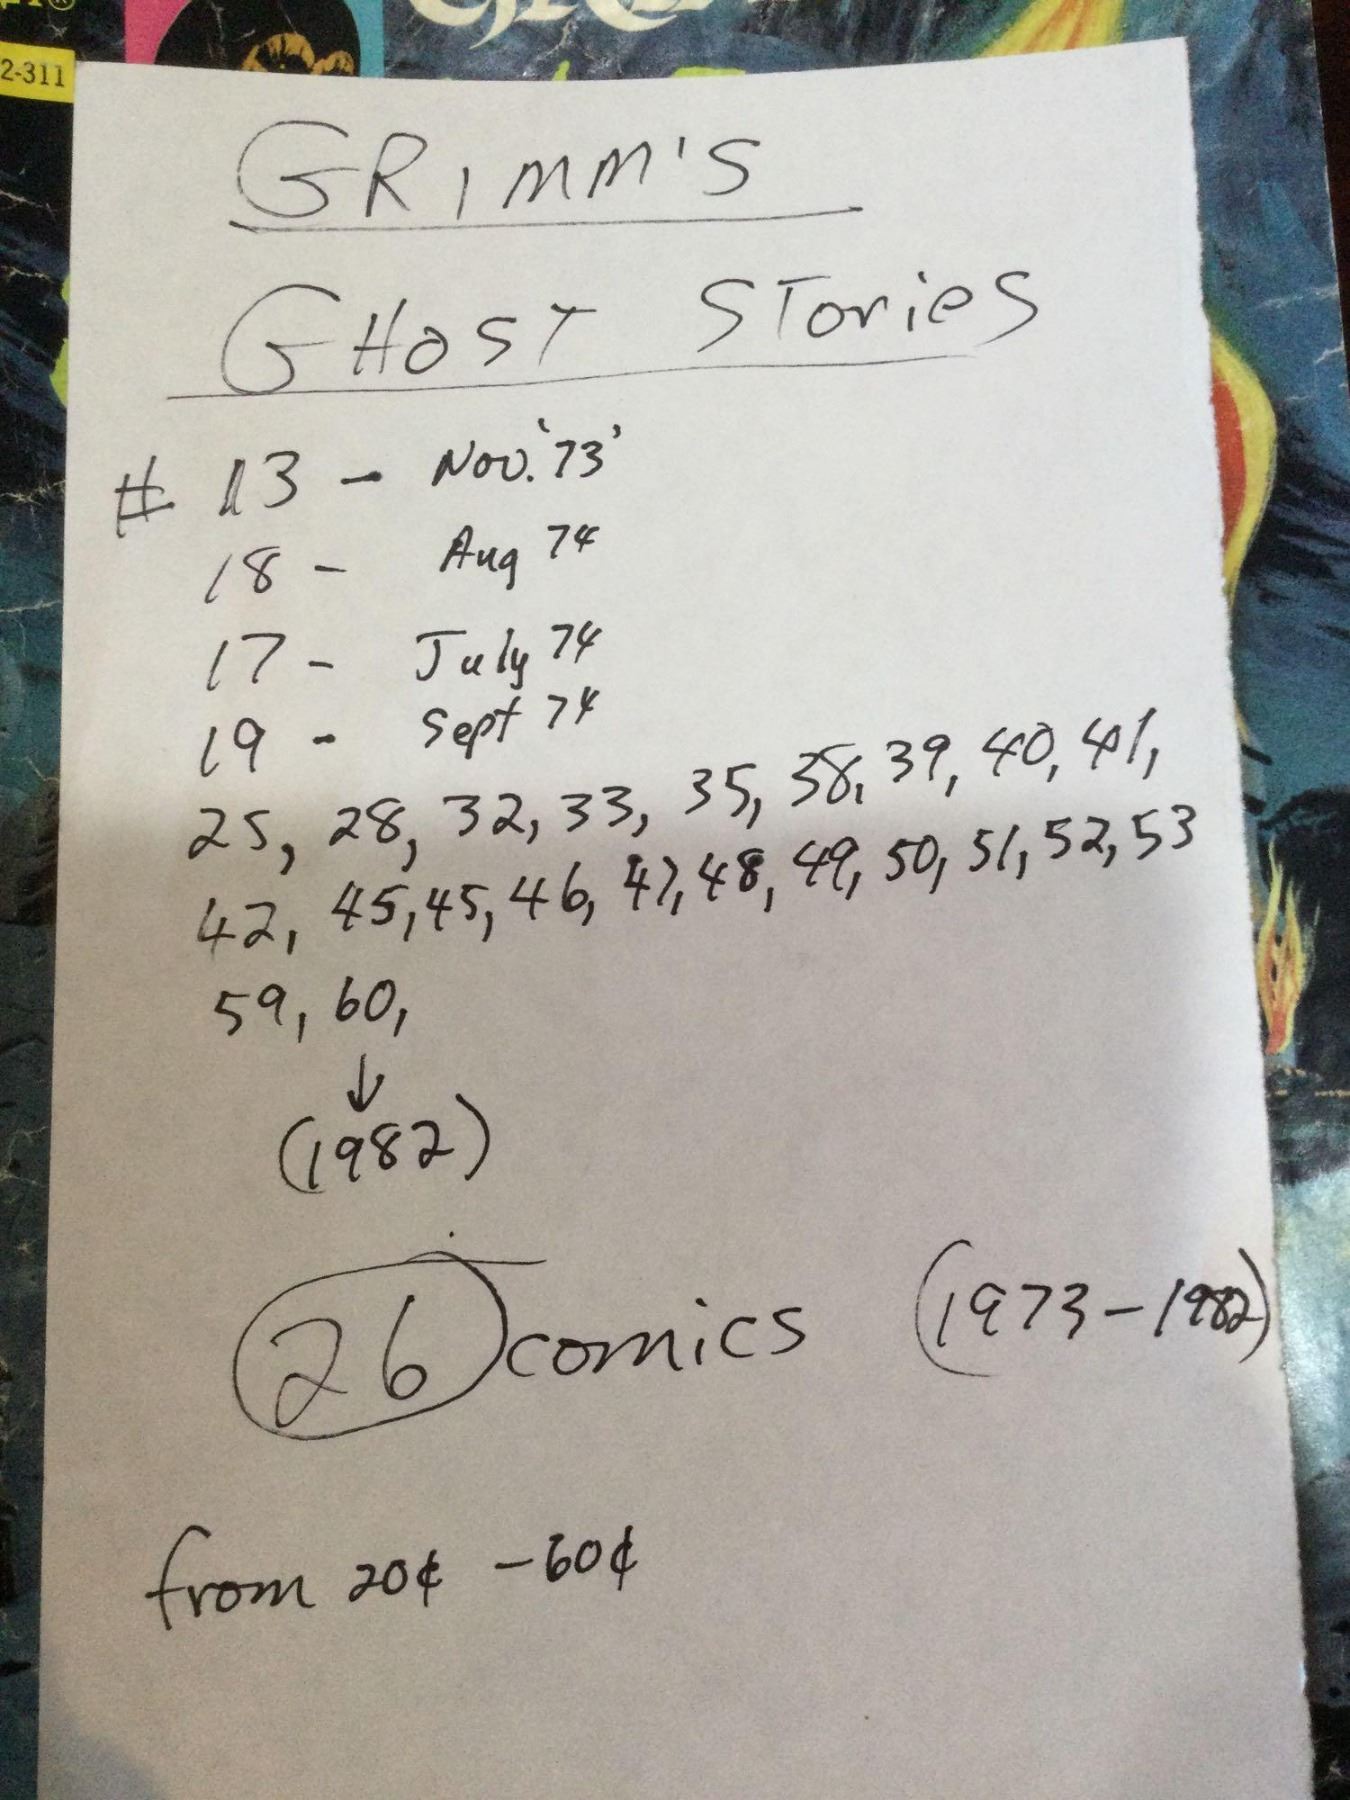 2-311
GRIMM'S
GHOST STORIES
# 13 - Nov. '73'
18 - Aug 74
17 - July 74
19 - Sept 74
25, 28, 32, 33, 35, 38, 39, 40, 41,
42, 45, 45, 46, 47, 48, 49, 50, 51, 52, 53
59, 60,
↓
(1982)
26 comics (1973-1982)
from 20¢ - 60¢